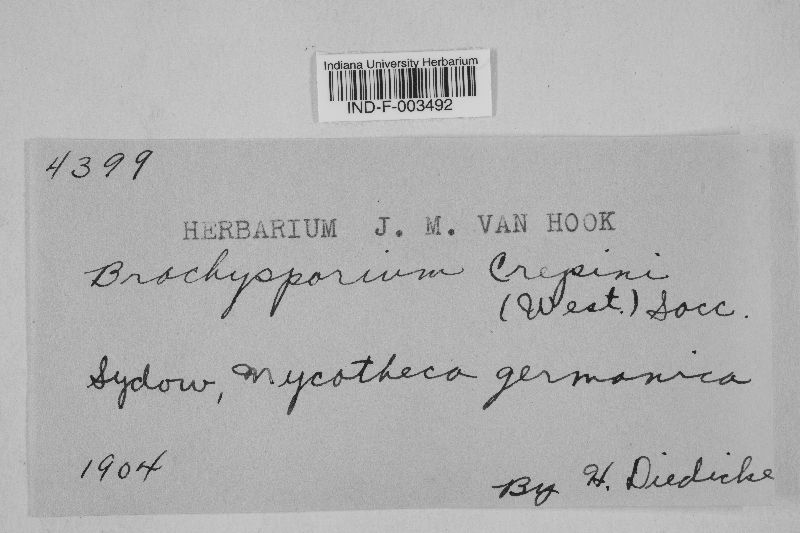 Indiana University Herbarium
IND-F-003492
4399
HERBARIUM J. M. VAN HOOK
Brachysporium Crepini
(West.) Sacc.
Sydow, Mycotheca germanica
1904
By H. Diedicke